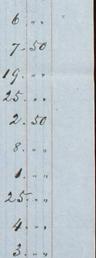 6 " "
7. 50
19. " "
25. " "
2. 50
8. " "
1. " "
25. " "
4. " "
3. " "